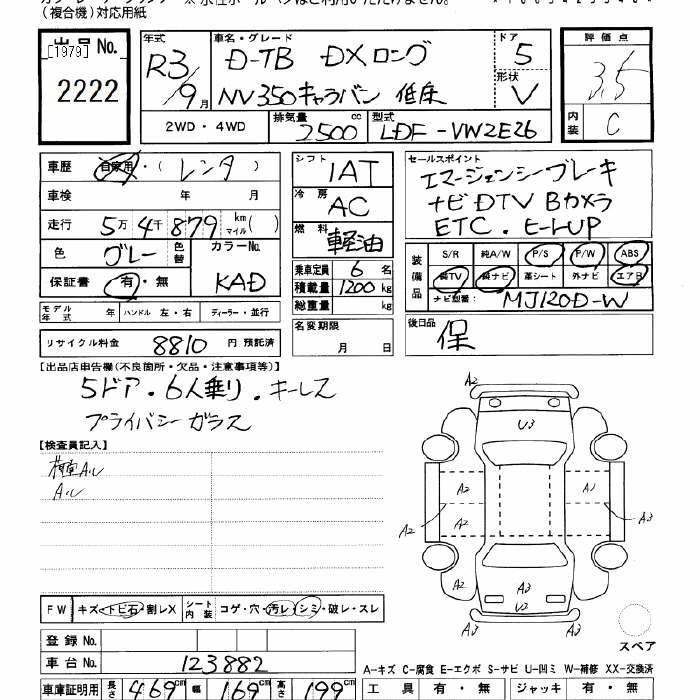 (複合機)対応用紙
出品No.
[1979]
2222
年式 R3/9月
車名・グレード D-TB DXロング
NV350キャラバン 低床
ドア 5
形状 V
2WD・4WD
排気量 2500 cc
型式 LDF-VW2E26
評価点 3.5
内装 C
車歴 自家用・(レンタ)
車検 年 月
走行 5万4千879 km マイル( )
色 グレー 色替
カラーNo. KAD
保証書 有・無
シフト IAT
冷房 AC
燃料 軽油
乗車定員 6名
積載量 1200kg
総重量 kg
名変期限
月 日
セールスポイント
エマージェンシーブレーキ
ナビ DTV Bカメラ
ETC. E-LUP
装備品
S/R 純A/W P/S P/W ABS
純TV 純ナビ 革シート 外ナビ エアB
ナビ型番: MJ120D-W
後日品
保
モデル年式 年 ハンドル 左・右 ディーラー・並行
リサイクル料金 8810 円 預託済
【出品店申告欄(不良箇所・欠品・注意事項等)】
5ドア・6人乗り.キーレス
プライバシーガラス
【検査員記入】
A.ル
A2
U3
A2 A1
A2 A2 A3 A3
A1
A3
U2
A2 A3
FW キズ・トビ石・割レX シート内装 コゲ・穴・汚レ・シミ・破レ・スレ
登録No.
車台No. 123882
車庫証明用 長さ 469cm 幅 169cm 高さ 199cm
スペア
A-キズ C-腐食 E-エクボ S-サビ U-凹ミ W-補修 XX-交換済
工具 有・無 ジャッキ 有・無